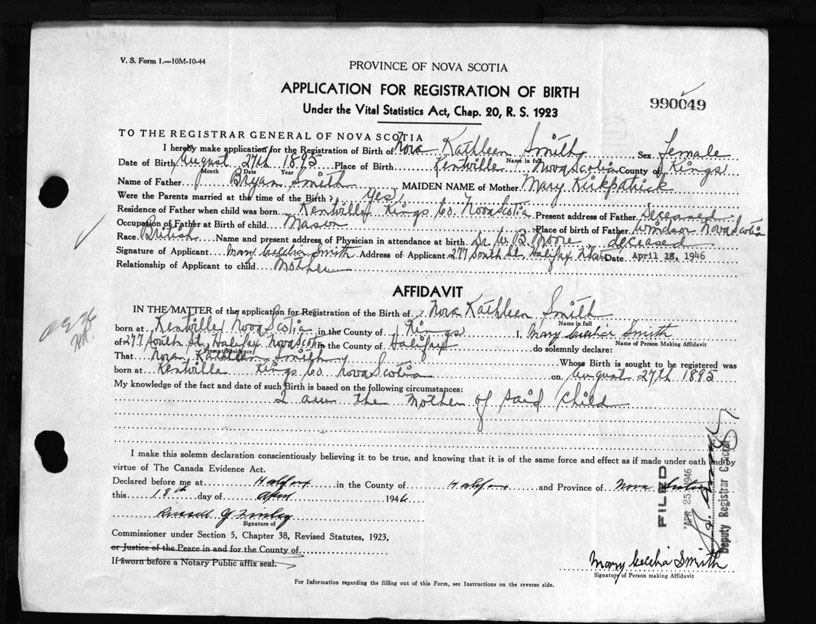 V. S. Form 1.—10M-10-44
PROVINCE OF NOVA SCOTIA
APPLICATION FOR REGISTRATION OF BIRTH
990049
Under the Vital Statistics Act, Chap. 20, R. S. 1923
TO THE REGISTRAR GENERAL OF NOVA SCOTIA
I hereby make application for the Registration of Birth of Nora Kathleen Smith Sex Female
Name in full
Date of Birth August 27th 1895 Place of Birth Kentville Nova Scotia County of Kings
Month Date Year
Name of Father Bryan Smith MAIDEN NAME of Mother Mary Kirkpatrick
Were the Parents married at the time of the Birth? Yes
Residence of Father when child was born. Kentville Kings Co. Nova Scotia Present address of Father. Deceased
Occupation of Father at Birth of child. Mason Place of birth of Father. Windsor Nova Scotia
Race. British Name and present address of Physician in attendance at birth. Dr. W B. Moore deceased
Signature of Applicant Mary Cecelia Smith Address of Applicant 277 South St. Halifax Date April 18, 1946
Relationship of Applicant to child Mother
AFFIDAVIT
IN THE MATTER of the application for Registration of the Birth of Nora Kathleen Smith
Name in full
born at Kentville Nova Scotia in the County of Kings I, Mary Cecelia Smith
Name of Person Making Affidavit
of 277 South St, Halifax Nova Scotia in the County of Halifax do solemnly declare:
That Nora Kathleen Smith Whose Birth is sought to be registered was
born at Kentville Kings Co Nova Scotia on August 27th 1895
My knowledge of the fact and date of such Birth is based on the following circumstances:
I am the Mother of said Child
I make this solemn declaration conscientiously believing it to be true, and knowing that it is of the same force and effect as if made under oath and by
virtue of The Canada Evidence Act.
Declared before me at Halifax in the County of Halifax and Province of Nova Scotia
this 18th day of April 1946
Signature of
Commissioner under Section 5, Chapter 38, Revised Statutes, 1923,
or Justice of the Peace in and for the County of
If sworn before a Notary Public affix seal.
FILED
APR 25 1946
Deputy Registrar General
Mary Cecelia Smith
Signature of Person making Affidavit
For Information regarding the filling out of this Form, see Instructions on the reverse side.